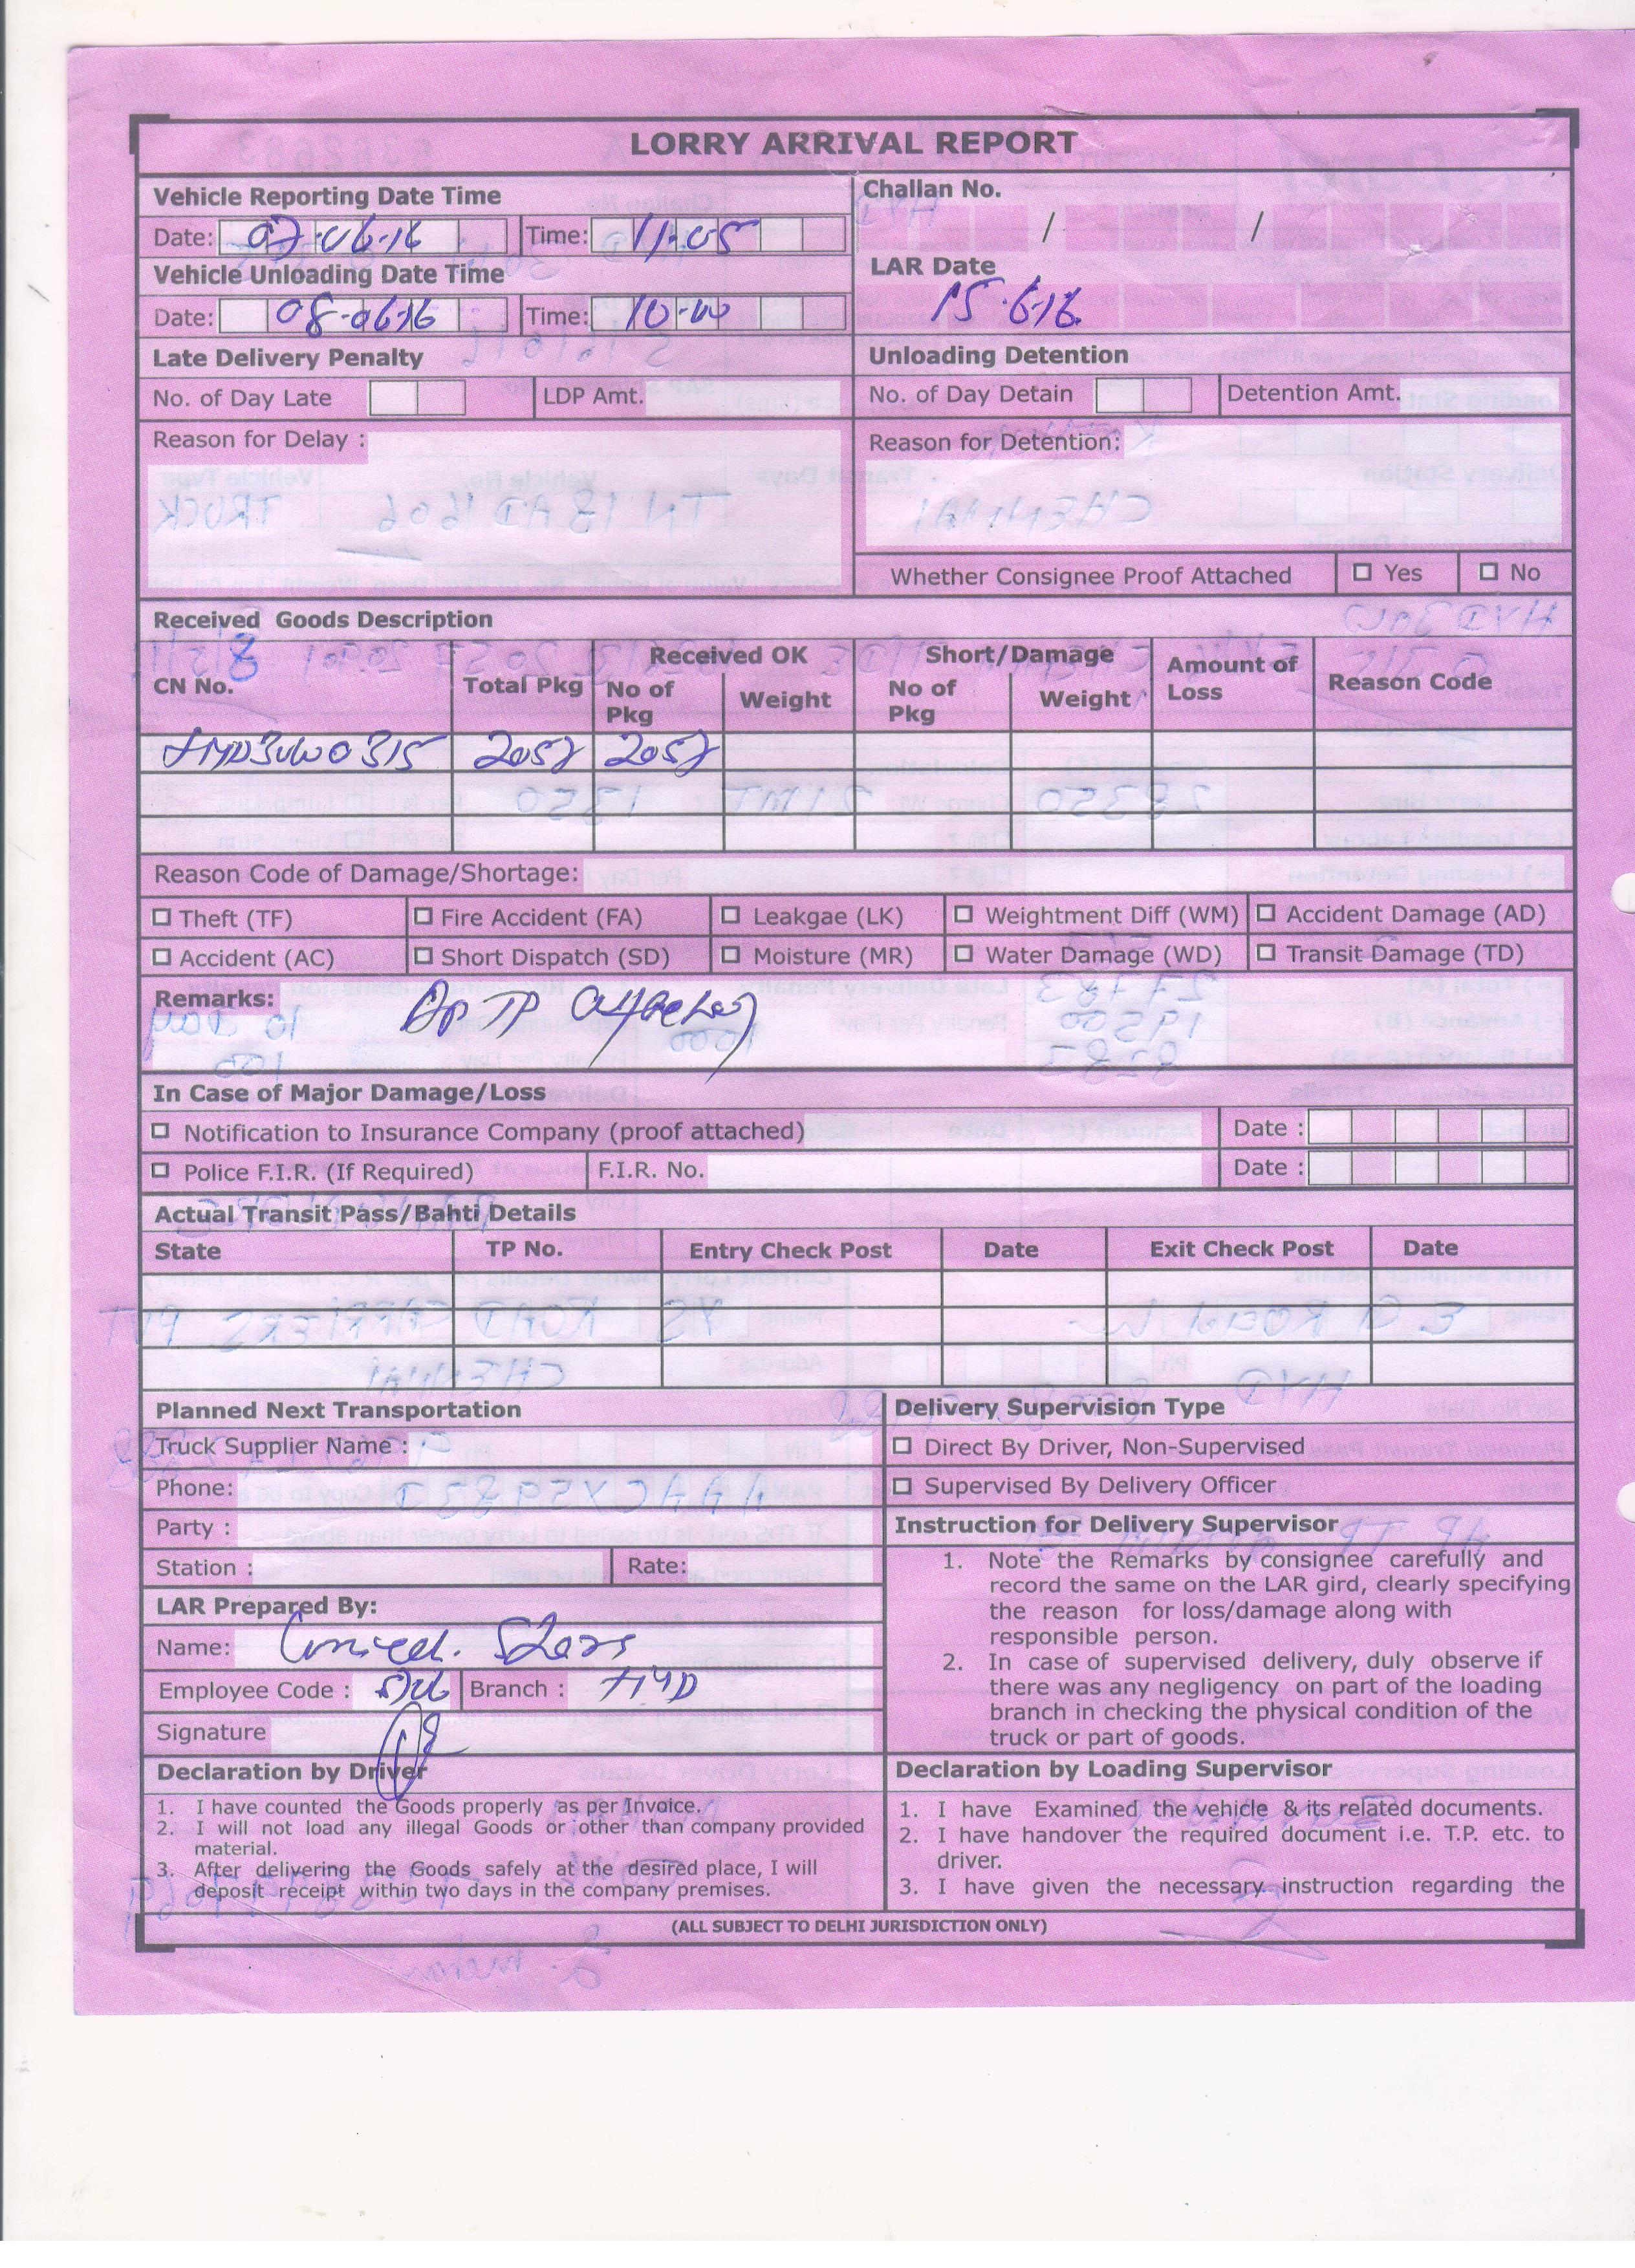 LORRY ARRIVAL REPORT
Vehicle Reporting Date Time
Date: 07-06-16 Time: 11-05
Challan No.
/ /
Vehicle Unloading Date Time
Date: 08-06-16 Time: 10-00
LAR Date
15-6-16
Late Delivery Penalty
No. of Day Late LDP Amt.
Unloading Detention
No. of Day Detain Detention Amt.
Reason for Delay :
Reason for Detention:
Whether Consignee Proof Attached Yes No
Received Goods Description
CN No. Total Pkg Received OK Short/Damage Amount of Loss Reason Code
No of Pkg Weight No of Pkg Weight
2057 2057
Reason Code of Damage/Shortage:
Theft (TF) Fire Accident (FA) Leakgae (LK) Weightment Diff (WM) Accident Damage (AD)
Accident (AC) Short Dispatch (SD) Moisture (MR) Water Damage (WD) Transit Damage (TD)
Remarks: Ap TP
In Case of Major Damage/Loss
Notification to Insurance Company (proof attached) Date :
Police F.I.R. (If Required) F.I.R. No. Date :
Actual Transit Pass/Bahti Details
State TP No. Entry Check Post Date Exit Check Post Date
Planned Next Transportation
Truck Supplier Name :
Phone:
Party :
Station : Rate:
LAR Prepared By:
Name:
Employee Code : Branch : HYD
Signature
Delivery Supervision Type
Direct By Driver, Non-Supervised
Supervised By Delivery Officer
Instruction for Delivery Supervisor
1. Note the Remarks by consignee carefully and
record the same on the LAR gird, clearly specifying
the reason for loss/damage along with
responsible person.
2. In case of supervised delivery, duly observe if
there was any negligency on part of the loading
branch in checking the physical condition of the
truck or part of goods.
Declaration by Driver
1. I have counted the Goods properly as per Invoice.
2. I will not load any illegal Goods or other than company provided
material.
3. After delivering the Goods safely at the desired place, I will
deposit receipt within two days in the company premises.
Declaration by Loading Supervisor
1. I have Examined the vehicle & its related documents.
2. I have handover the required document i.e. T.P. etc. to
driver.
3. I have given the necessary instruction regarding the
(ALL SUBJECT TO DELHI JURISDICTION ONLY)